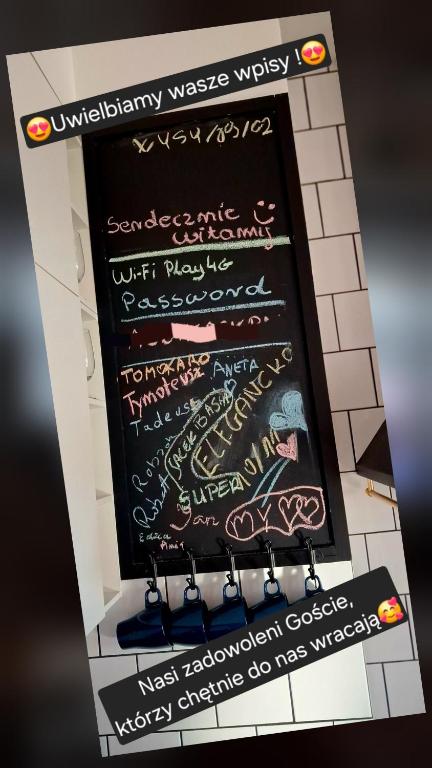 😍Uwielbiamy wasze wpisy !😍
Serdecznie
witamy
Wi-Fi Play4G
Password
TOMOKARO
Tymoteusz ANETA
Tadeusz
JACEK BASIA
ELEGANCKO
Robert
SUPER 10/11
Jan
Nasi zadowoleni Goście,
którzy chętnie do nas wracają🥰